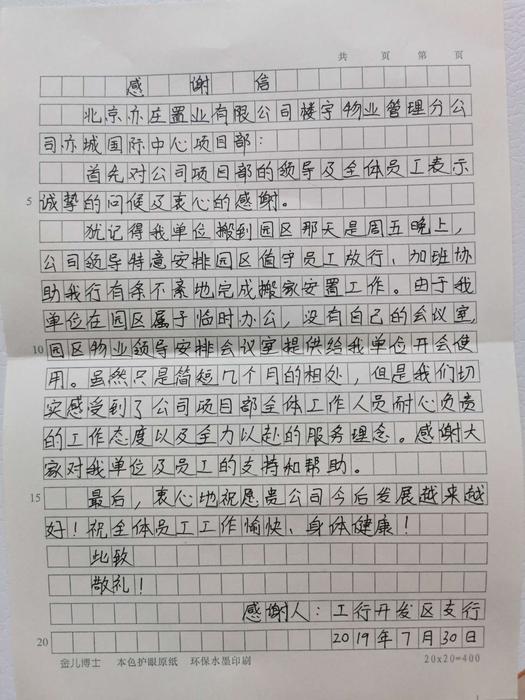 共 页 第 页
感谢信
北京亦庄置业有限公司楼宇物业管理分公
司亦城国际中心项目部：
首先对公司项目部的领导及全体员工表示
5 诚挚的问候及衷心的感谢。
犹记得我单位搬到园区那天是周五晚上，
公司领导特意安排园区值守员工放行、加班协
助我行有条不紊地完成搬家安置工作。由于我
单位在园区属于临时办公，没有自己的会议室，
10 园区物业领导安排会议室提供给我单位开会使
用。虽然只是简短几个月的相处，但是我们切
实感受到了公司项目部全体工作人员耐心负责
的工作态度以及全力以赴的服务理念。感谢大
家对我单位及员工的支持和帮助。
15 最后，衷心地祝愿贵公司今后发展越来越
好！祝全体员工工作愉快、身体健康！
此致
敬礼！
感谢人：工行开发区支行
20 2019年7月30日
金儿博士 本色护眼原纸 环保水墨印刷 20x20=400